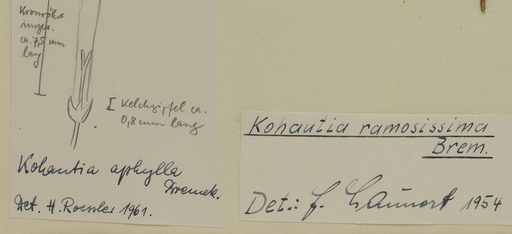 Kronröhre
insges.
ca. 7,5 mm
lang
Kelchzipfel ca.
0,8 mm lang
Kohautia aphylla
Bremek.
Det. H. Roessler 1961.
Kohautia ramosissima
Brem.
Det.: f. Launert 1954